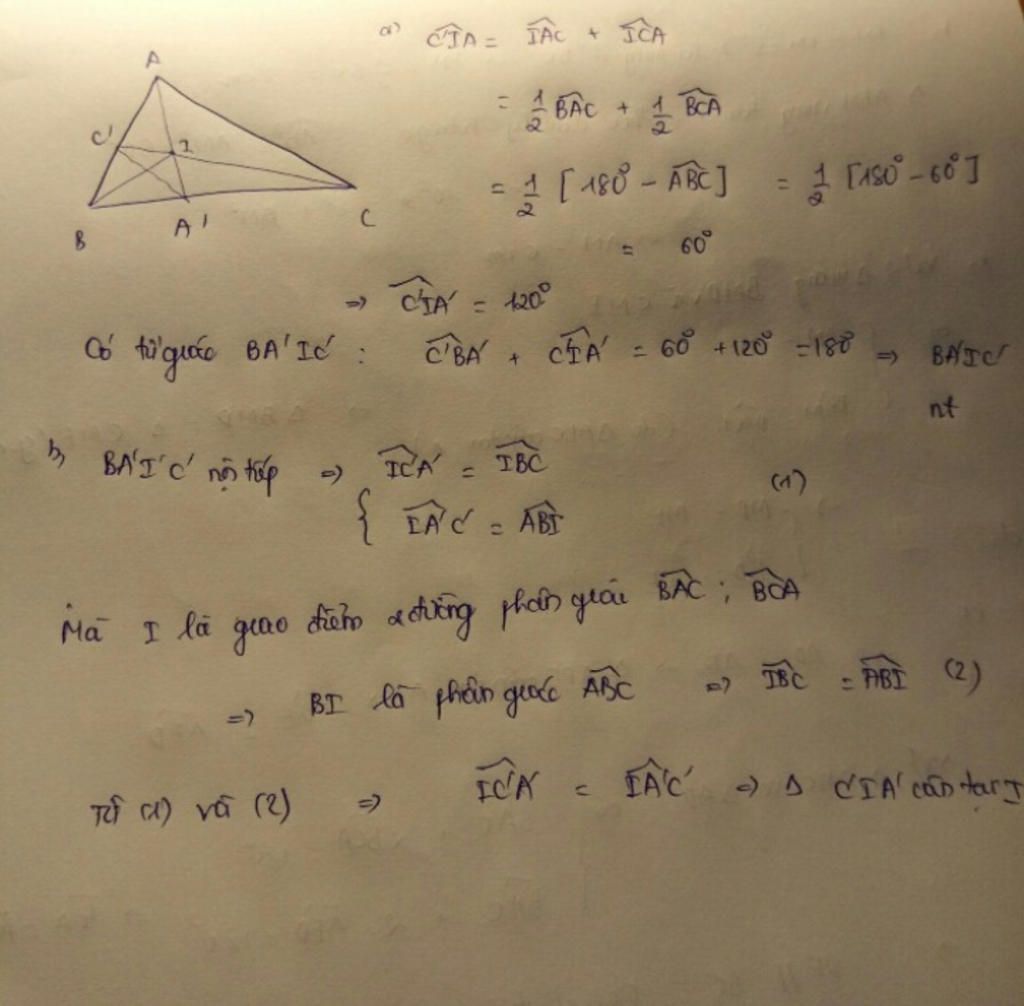 A
C'
I
B
A'
C
a) C'IA = IAC + ICA
= 1/2 BAC + 1/2 BCA
= 1/2 [180° - ABC] = 1/2 [180° - 60°]
= 60°
=> C'IA' = 120°
Có tứ giác BA'IC' : C'BA' + C'IA' = 60° + 120° = 180° => BA'IC'
nt
b, BA'I'C' nội tiếp => IC'A' = IBC
{ IA'C' = ABI (1)
Mà I là giao điểm 2 đường phân giác BAC ; BCA
=> BI là phân giác ABC => IBC = ABI (2)
Từ (1) và (2) => IC'A' = IA'C' => Δ C'IA' cân tại I